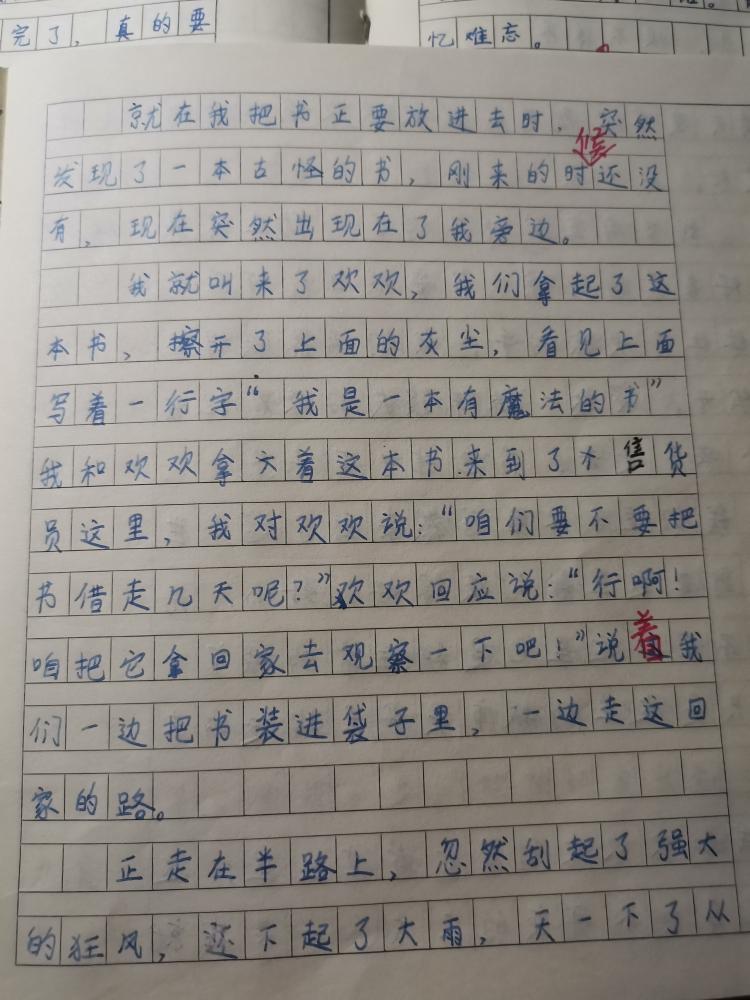 完了，真的要
忆难忘。
就在我把书正要放进去时，突然
候
发现了一本古怪的书，刚来的时还没
有，现在突然出现在了我旁边。
我就叫来了欢欢，我们拿起了这
本书，擦开了上面的灰尘，看见上面
写着一行字“我是一本有魔法的书”
我和欢欢拿着这本书来到了售货
员这里，我对欢欢说：“咱们要不要把
书借走几天呢？”欢欢回应说：“行啊！
着
咱把它拿回家去观察一下吧！”说我
们一边把书装进袋子里，一边走这回
家的路。
正走在半路上，忽然刮起了强大
的狂风，还下起了大雨，天一下了从